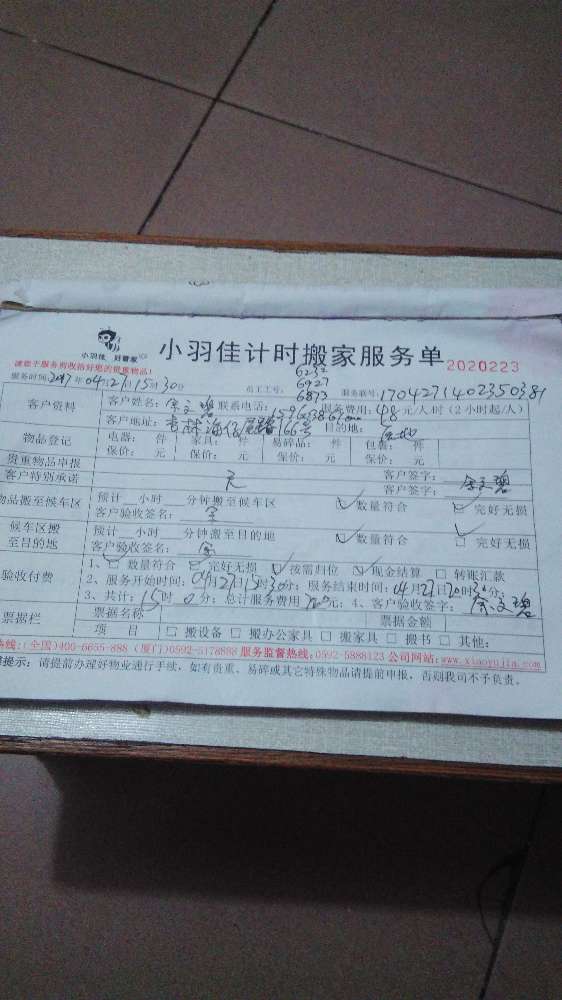 小羽佳 好管家
小羽佳计时搬家服务单
2020223
请您于服务前收拾好您的贵重物品!
服务时间:2017年04月27日15时30分
员工工号: 6232 6927 6873
服务账号:1704271402350381
客户资料
客户姓名:余文碧 联系电话: 服务费用:48元/人时(2小时起/人)
客户地址: 目的地:
物品登记
电器: 件 家具: 件 易碎品: 件 包装: 件
贵重物品申报
保价: 元 保价: 元 保价: 元 保价: 元
客户签字:
客户特别承诺
无 客户签字:余文碧
物品搬至候车区
预计 小时 分钟搬至候车区 数量符合 完好无损
客户验收签名:余
候车区搬至目的地
预计 小时 分钟搬至目的地 数量符合 完好无损
客户验收签名:余
验收付费
1、数量符合 完好无损 按需归位 现金结算 转账汇款
2、服务开始时间:04月27日15时30分;服务结束时间:04月27日20时30分;
3、共计:15时0分;总计服务费用 元;4、客户验收签字:余文碧
票据栏
票据名称 票据金额
项 目 搬设备 搬办公家具 搬家具 搬书 其他:
热线:(全国)400-6655-888 (厦门)0592-5178888 服务监督热线:0592-5888123 公司网站:www.xiaoyujia.com
提示:请提前办理好物业进行手续,如有贵重、易碎或其它特殊物品请提前申报,否则我司不予负责。